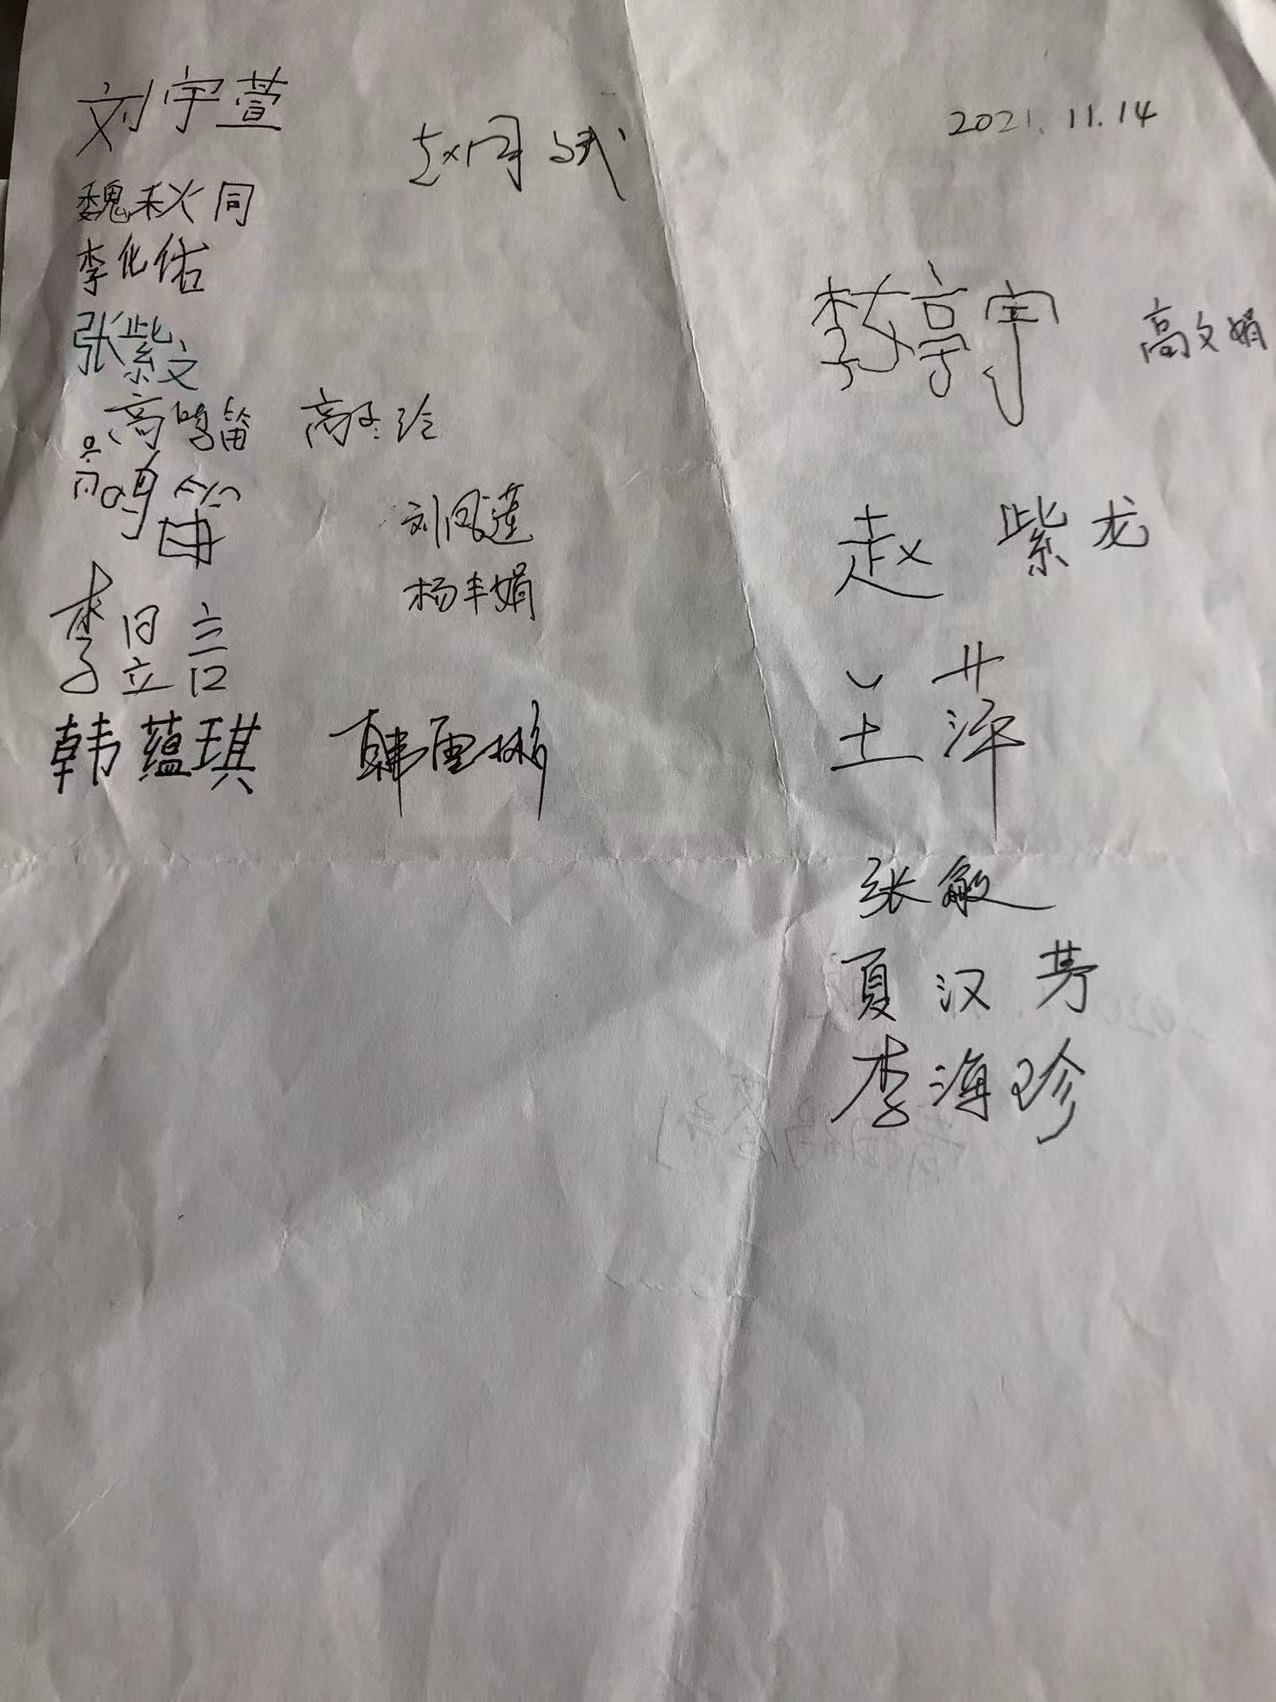 2021.11.14
刘宇萱
赵国斌
魏秋同
李化佑
张紫文
高鸣笛 高玲
高鸣笛
刘凤莲
杨丰娟
李昱言
韩蕴琪 韩雪彬
李婷宇 高文娟
赵紫龙
王萍
张敏
夏汉芳
李海珍